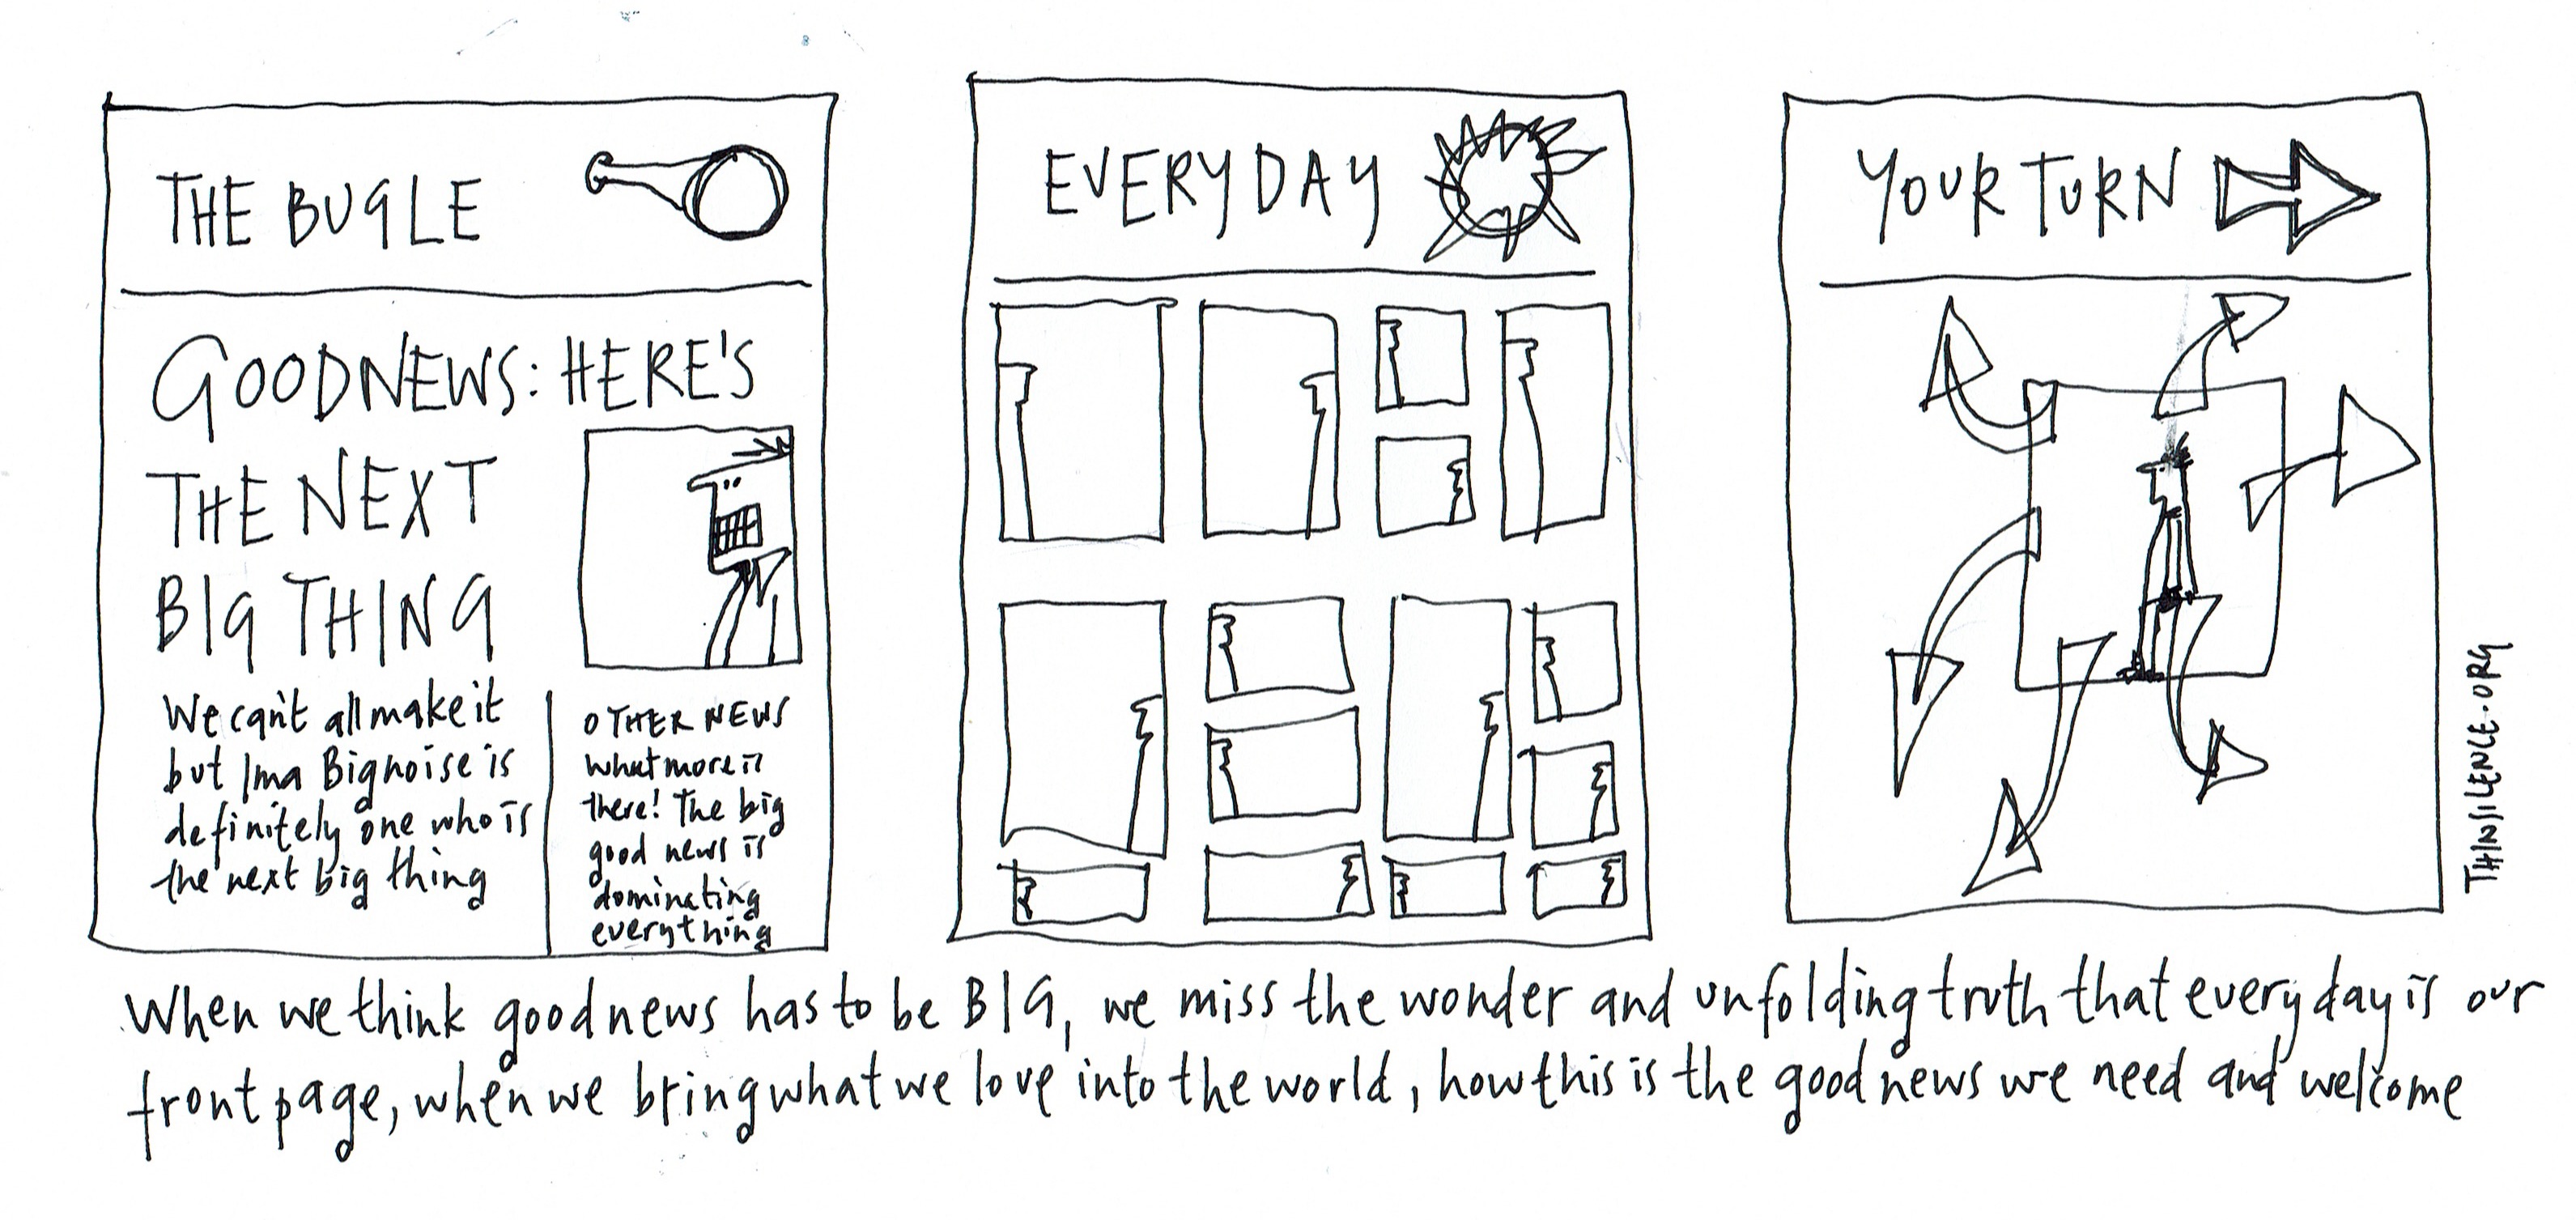 THE BUGLE
GOOD NEWS: HERE'S
THE NEXT
BIG THING
We can't all make it
but Ima Bignoise is
definitely one who is
the next big thing
OTHER NEWS
what more is
there! The big
good news is
dominating
everything
EVERY DAY
YOUR TURN
THINSILENCE.ORG
When we think good news has to be BIG, we miss the wonder and unfolding truth that every day is our
front page, when we bring what we love into the world, how this is the good news we need and welcome